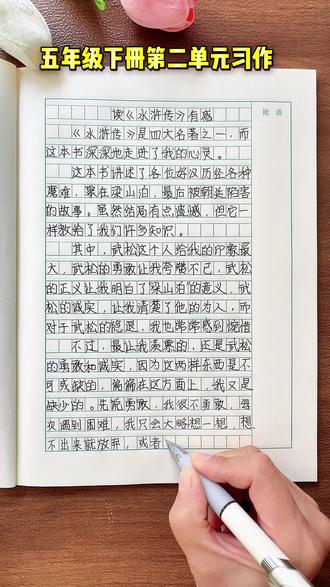 五年级下册第二单元习作
批语
读《水浒传》有感
《水浒传》是四大名著之一，而
这本书深深地走进了我的心灵。
这本书讲述了各位好汉历经各种
磨难，聚在梁山泊，最后被朝廷陷害
的故事。虽然结局有点遗憾，但它一
样教给了我们许多知识。
其中，武松这个人给我的印象最
大，武松的勇敢让我夸赞不已，武松
的正义让我明白了梁山泊的意义，武
松的诚实，让我清楚了他的为人，而
对于武松的隐退，我也常常感到惋惜
不过，最让我羡慕的，还是武松
的勇敢和诚实，因为这两样东西是不
可或缺的，偏偏在这方面上，我又是
缺少的。先说勇敢，我很不勇敢，每
次遇到困难，我只会大略想一想，想
不出来就放弃，或者